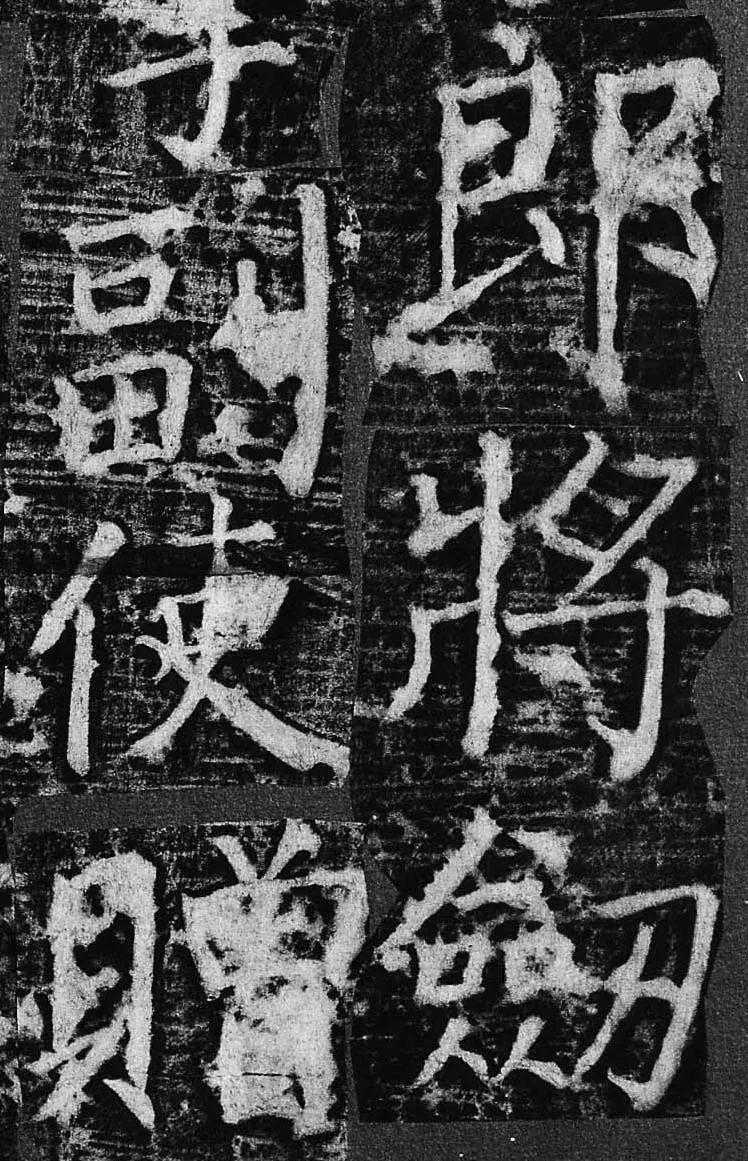 郎將劒
副使贈